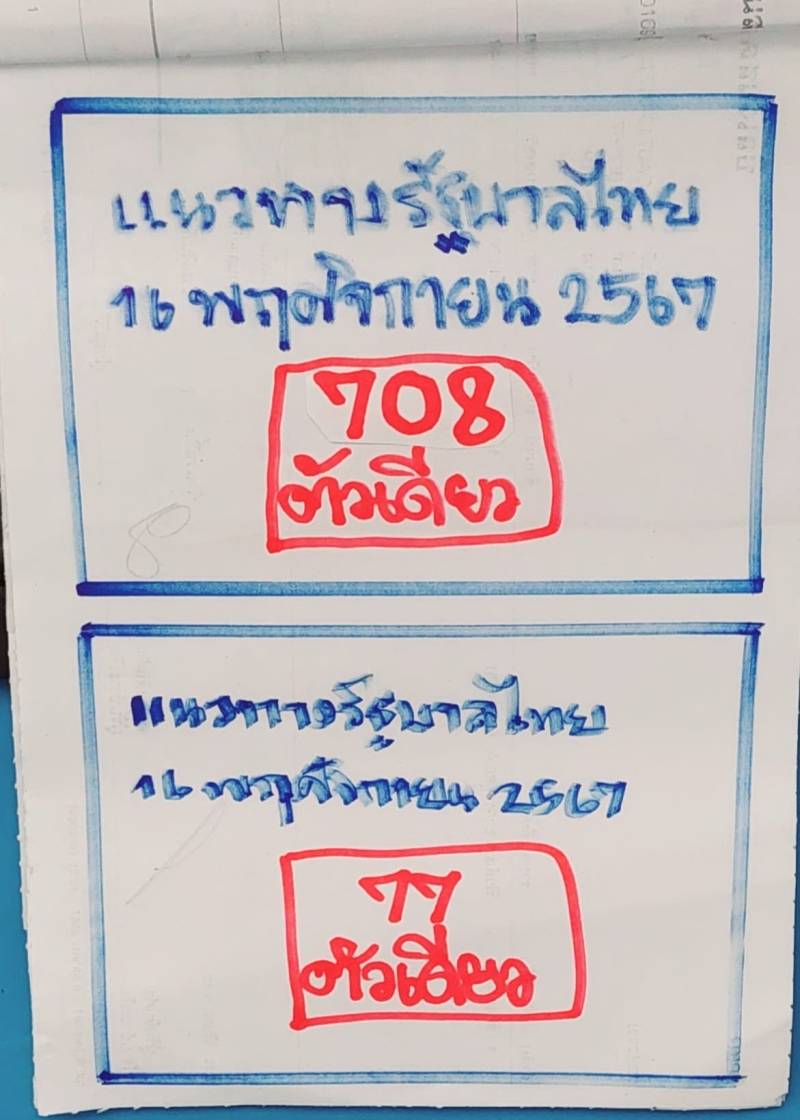 แนวทางรัฐบาลไทย
16 พฤศจิกายน 2567
708
ตัวเดียว
แนวทางรัฐบาลไทย
16 พฤศจิกายน 2567
77
ตัวเดียว